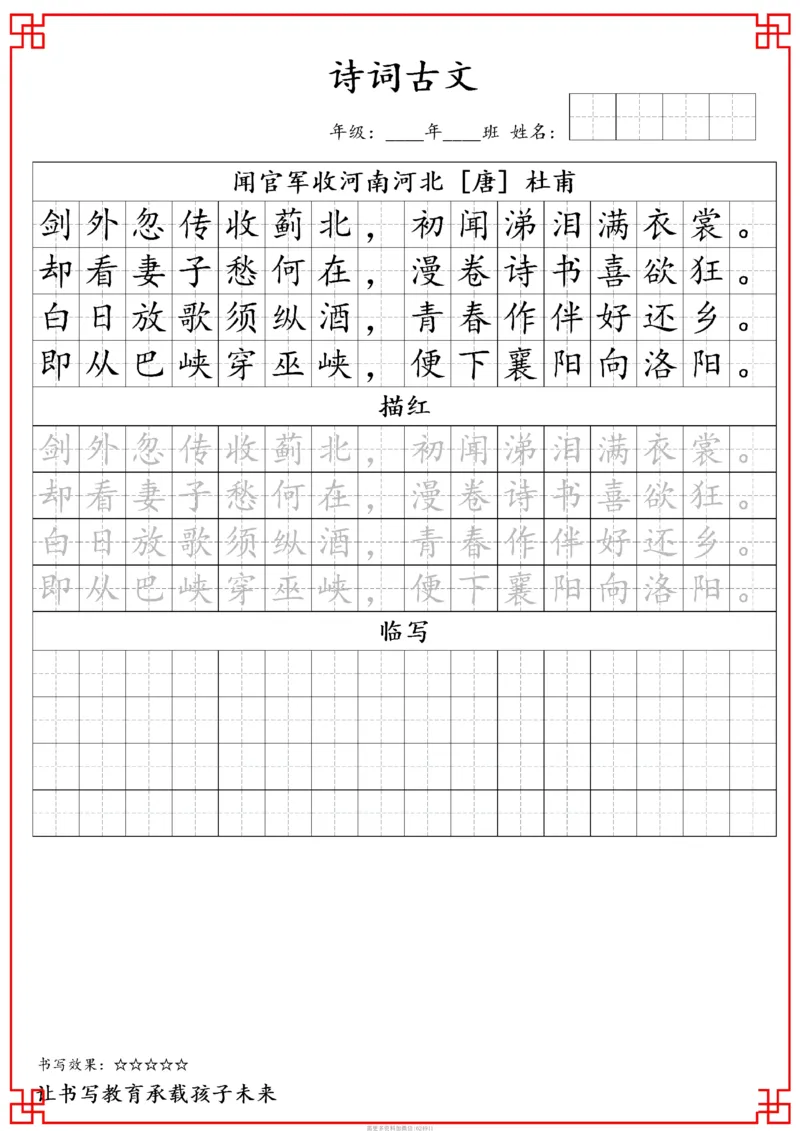 诗词古文
年级：____年____班 姓名：
闻官军收河南河北［唐］杜甫
剑外忽传收蓟北，初闻涕泪满衣裳。
却看妻子愁何在，漫卷诗书喜欲狂。
白日放歌须纵酒，青春作伴好还乡。
即从巴峡穿巫峡，便下襄阳向洛阳。
描红
剑外忽传收蓟北，初闻涕泪满衣裳。
却看妻子愁何在，漫卷诗书喜欲狂。
白日放歌须纵酒，青春作伴好还乡。
即从巴峡穿巫峡，便下襄阳向洛阳。
临写
书写效果：☆☆☆☆☆
让书写教育承载孩子未来